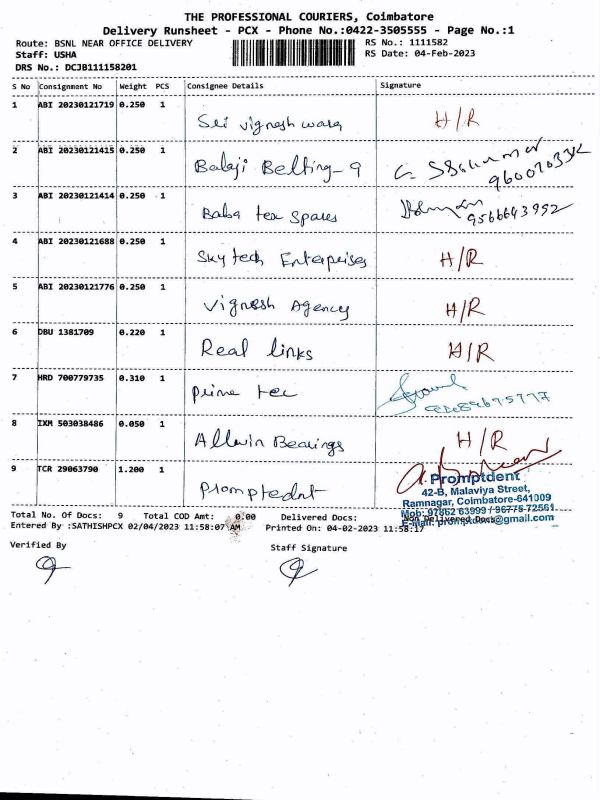 THE PROFESSIONAL COURIERS, Coimbatore
Delivery Runsheet - PCX - Phone No.:0422-3505555 - Page No.:1
Route: BSNL NEAR OFFICE DELIVERY RS No.: 1111582
Staff: USHA RS Date: 04-Feb-2023
DRS No.: DCJB111158201
S No Consignment No Weight PCS Consignee Details Signature
1 ABI 20230121719 0.250 1 Sri vignesh wara H/R
2 ABI 20230121415 0.250 1 Balaji Belting-9
3 ABI 20230121414 0.250 1 Baba tex spares 9566643992
4 ABI 20230121688 0.250 1 Sky tech Enterprises H/R
5 ABI 20230121776 0.250 1 Vignesh Agency H/R
6 DBU 1381709 0.220 1 Real links H/R
7 HRD 700779735 0.310 1 prime tec
8 IXM 503038486 0.050 1 Allwin Bearings H/R
9 TCR 29063790 1.200 1 promptednt
Promptdent
42-B, Malaviya Street,
Ramnagar, Coimbatore-641009
Mob: 97862 63999 / 96775 72561
E-Mail: promptdent@gmail.com
Total No. Of Docs: 9 Total COD Amt: 0.00 Delivered Docs: Non Delivered Docs:
Entered By :SATHISHPCX 02/04/2023 11:58:07 AM Printed On: 04-02-2023 11:58:17
Verified By Staff Signature